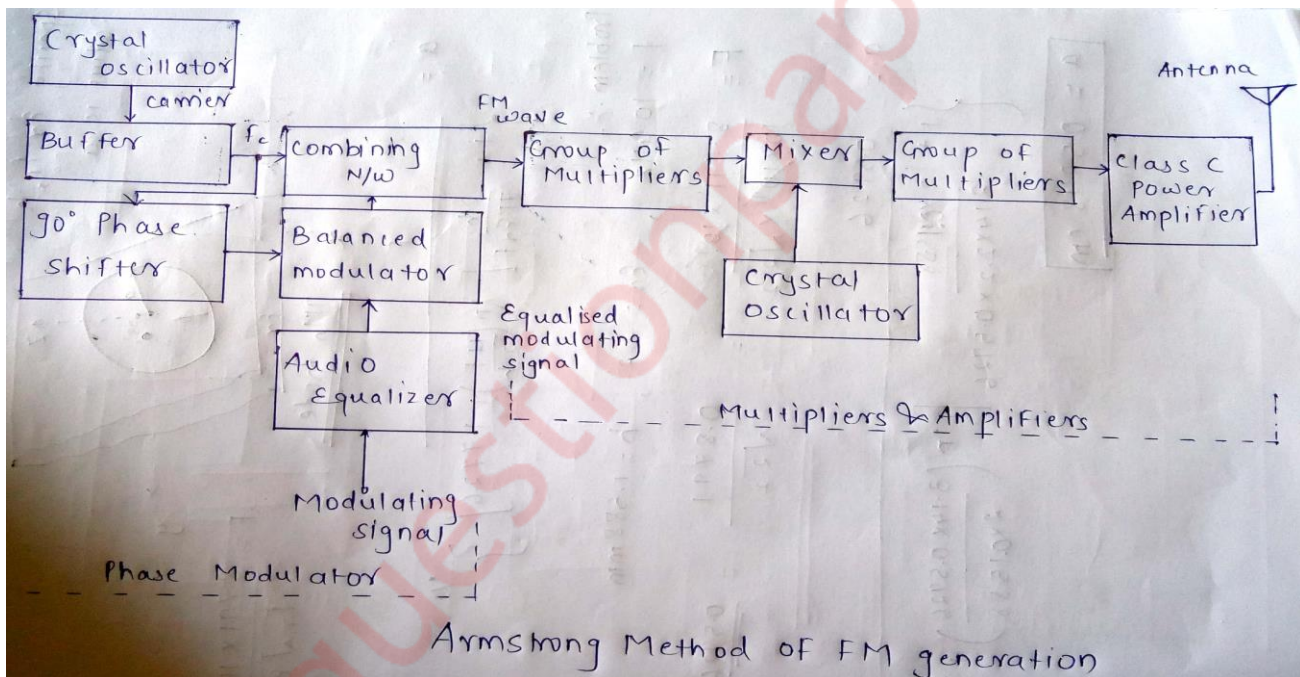 Crystal
oscillator
carrier
Buffer
fc
Combining
N/W
FM
wave
Group of
Multipliers
Mixer
Group of
Multipliers
Antenna
Class C
Power
Amplifier
90° Phase
Shifter
Balanced
modulator
Crystal
Oscillator
Equalised
modulating
signal
Audio
Equalizer
Multipliers & Amplifiers
Modulating
signal
Phase Modulator
Armstrong Method of FM generation
uestionpap